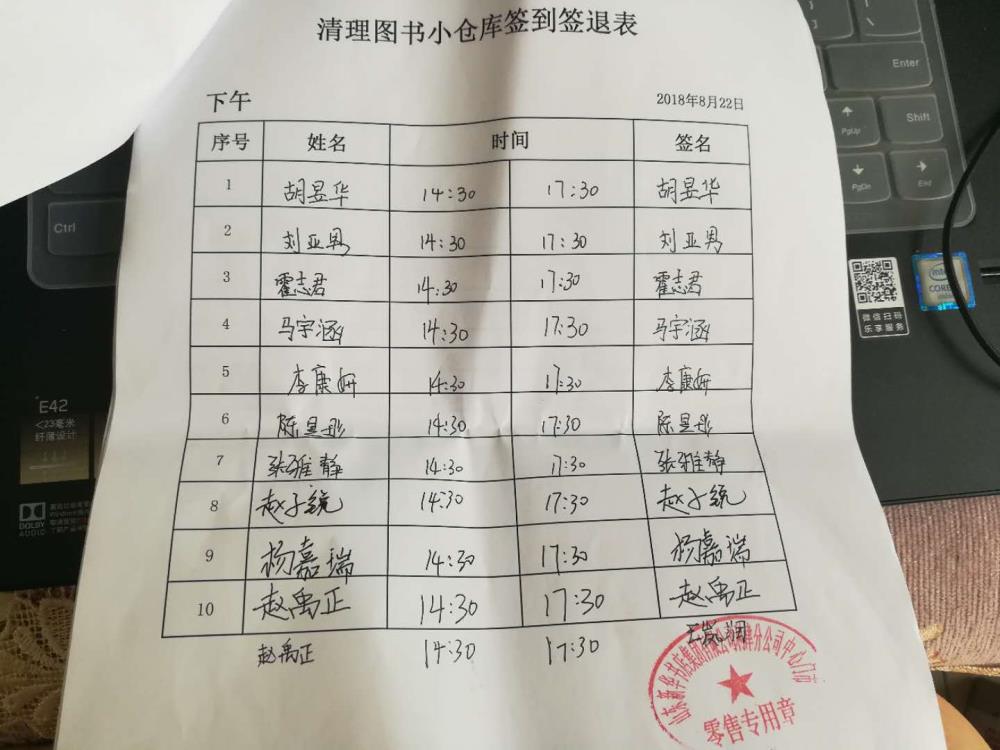 清理图书小仓库签到签退表
下午 2018年8月22日
序号 姓名 时间 签名
1 胡昱华 14:30 17:30 胡昱华
2 刘亚男 14:30 17:30 刘亚男
3 霍志君 14:30 17:30 霍志君
4 马宇涵 14:30 17:30 马宇涵
5 李康妍 14:30 17:30 李康妍
6 陈昱彤 14:30 17:30 陈昱彤
7 张雅静 14:30 17:30 张雅静
8 赵子统 14:30 17:30 赵子统
9 杨嘉瑞 14:30 17:30 杨嘉瑞
10 赵禹正 14:30 17:30 赵禹正
赵禹正 14:30 17:30 王岚翔
山东新华书店集团有限公司 分公司中心门市
零售专用章
Enter
Shift
PgUp
PgDn
End
Ctrl
intel
CORE
微信扫码
乐享服务
E42
<23毫米
纤薄设计
DOLBY
AUDIO